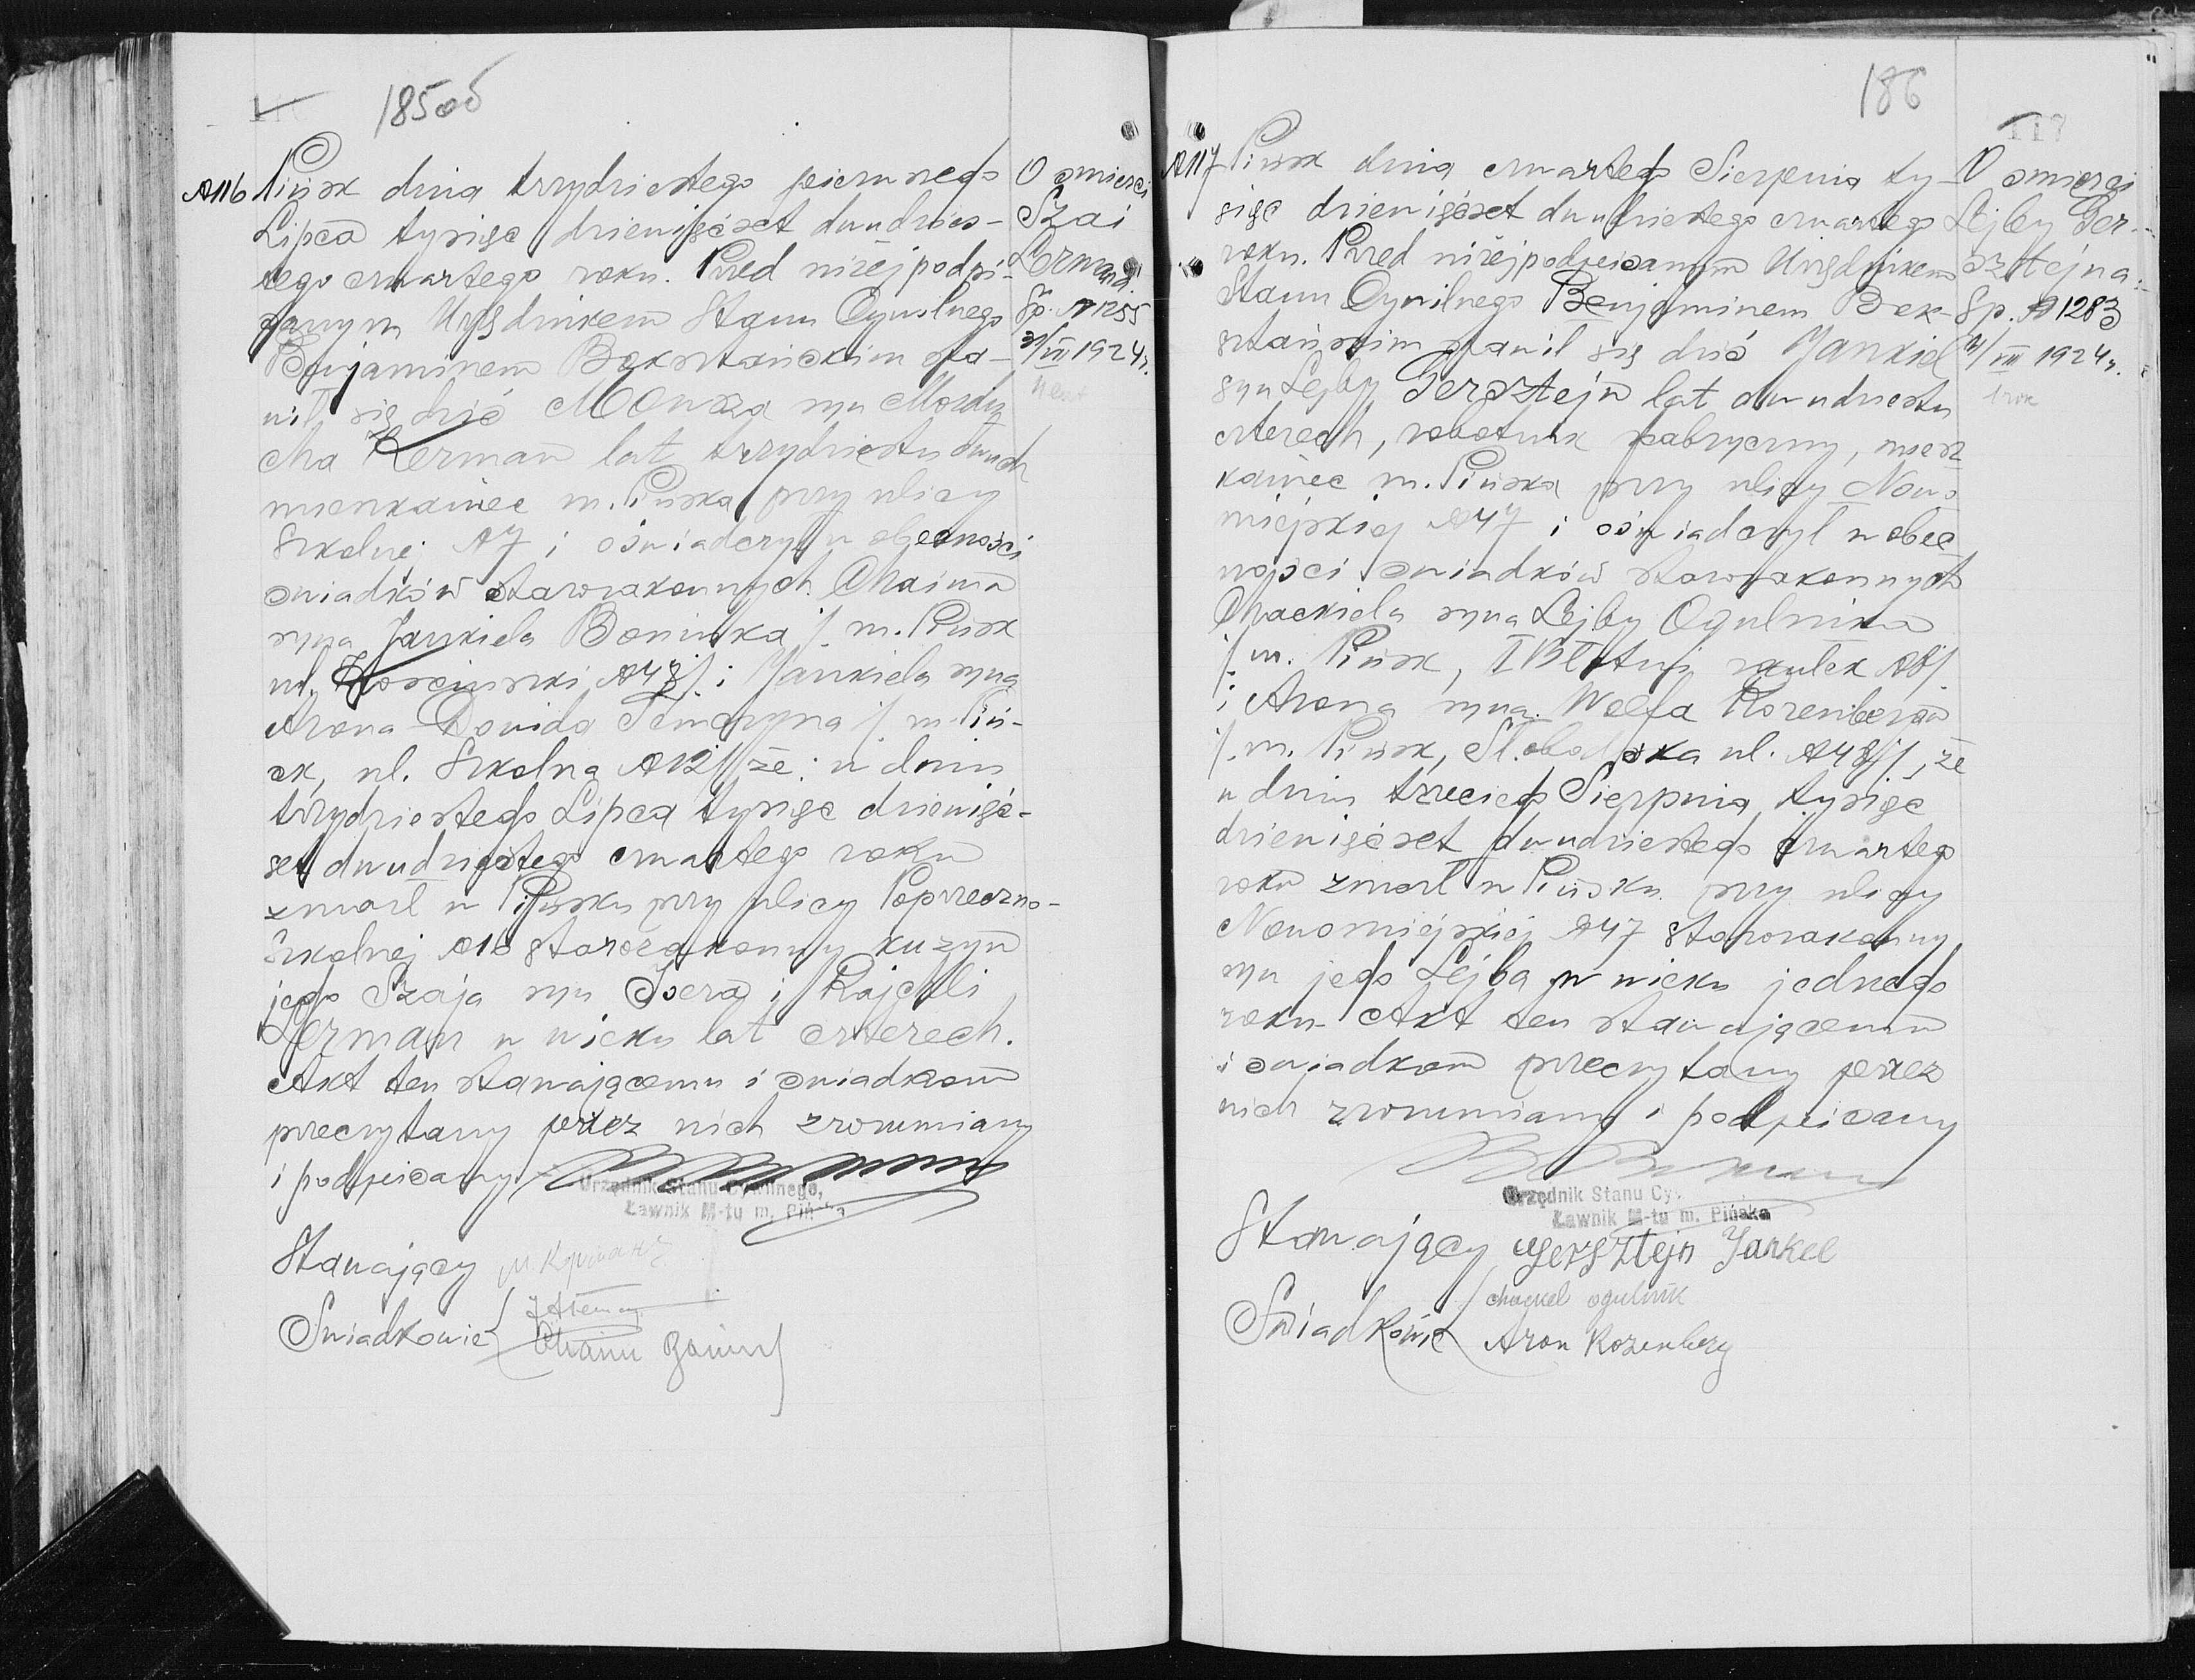 185об
№116 Pińsk dnia trzydziestego pierwszego
Lipca tysiąc dziewięćset dwudzies-
tego czwartego roku. Przed niżej podpi-
sanym Urzędnikem Stanu Cywilnego
Benjaminem Baksztańskim sta-
wił się dziś Mowsza syn Mordu
cha Lerman lat trzydziestu dwuch
mieszkaniec m. Pińska przy ulicy
Szkolnej №7 i oświadczył w obecności
swiadków starozakonnych Chaima
syna Jankiela Bonińka /m. Pińsk
ul. Kosciuszki №48/ i Jankiela syna
Arona-Dowida /m. Piń-
sk, ul. Szkolna №12/ że: w dniu
trzydziestego Lipca tysiąc dziewięć-
set dwudziestego czwartego roku
zmarł w Pińsku przy ulicy Poprzeczno-
Szkolnej №16 starozakonny kuzyn
jego Szaja syn Iosera i Rajchli
Lerman w wieku lat czterech.
Akt ten stawającemu i swiadkom
przeczytany przez nich zrozumiany
i podpisany
Urzędnik Stanu Cywilnego,
Ławnik M-tu m. Pińska
Stawający
Swiadkowie
Chaim
O smierci
Szai
Lermana
Sp. №1255
31/VII 1924 r.
186
117
№117 Pińsk dnia czwartego Sierpnia ty-
siąc dziewięćset dwudziestego czwartego
roku. Przed niżej podpisanym Urzędnikem
Stanu Cywilnego Benjaminem Bak-
sztańskim stawił się dziś Jankiel
syn Lejby Gersztejn lat dwudziestu
czterech, robotnik fabryczny, miesz
kaniec m. Pińska przy ulicy Nowo
miejskiej №47 i oświadczył w obec
ności swiadków starozakonnych
Chackiela syna Lejby Ogulnika
/m. Pińsk, I Błotny zaułek №8/
i Arona syna Wolfa Rozenberga
/m. Pińsk, Słobodska ul. №48/, że
w dniu trzeciego Sierpnia tysiąc
dziewięćset dwudziestego czwartego
roku zmarł w Pińsku przy ulicy
Nowomiejskiej №47 starozakonny
syn jego Lejba w wieku jednego
roku. Akt ten stawającemu
i swiadkom przeczytany przez
nich zrozumiany i podpisany
Urzędnik Stanu Cy.
Ławnik M-tu m. Pińska
Stawający Gersztejn Jankel
chackel ogulnik
Swiadkowie Aron Rozenberg
O smierci
Lejby Ger-
sztejna
Sp. №1283
4/VIII 1924 r.
1 rok